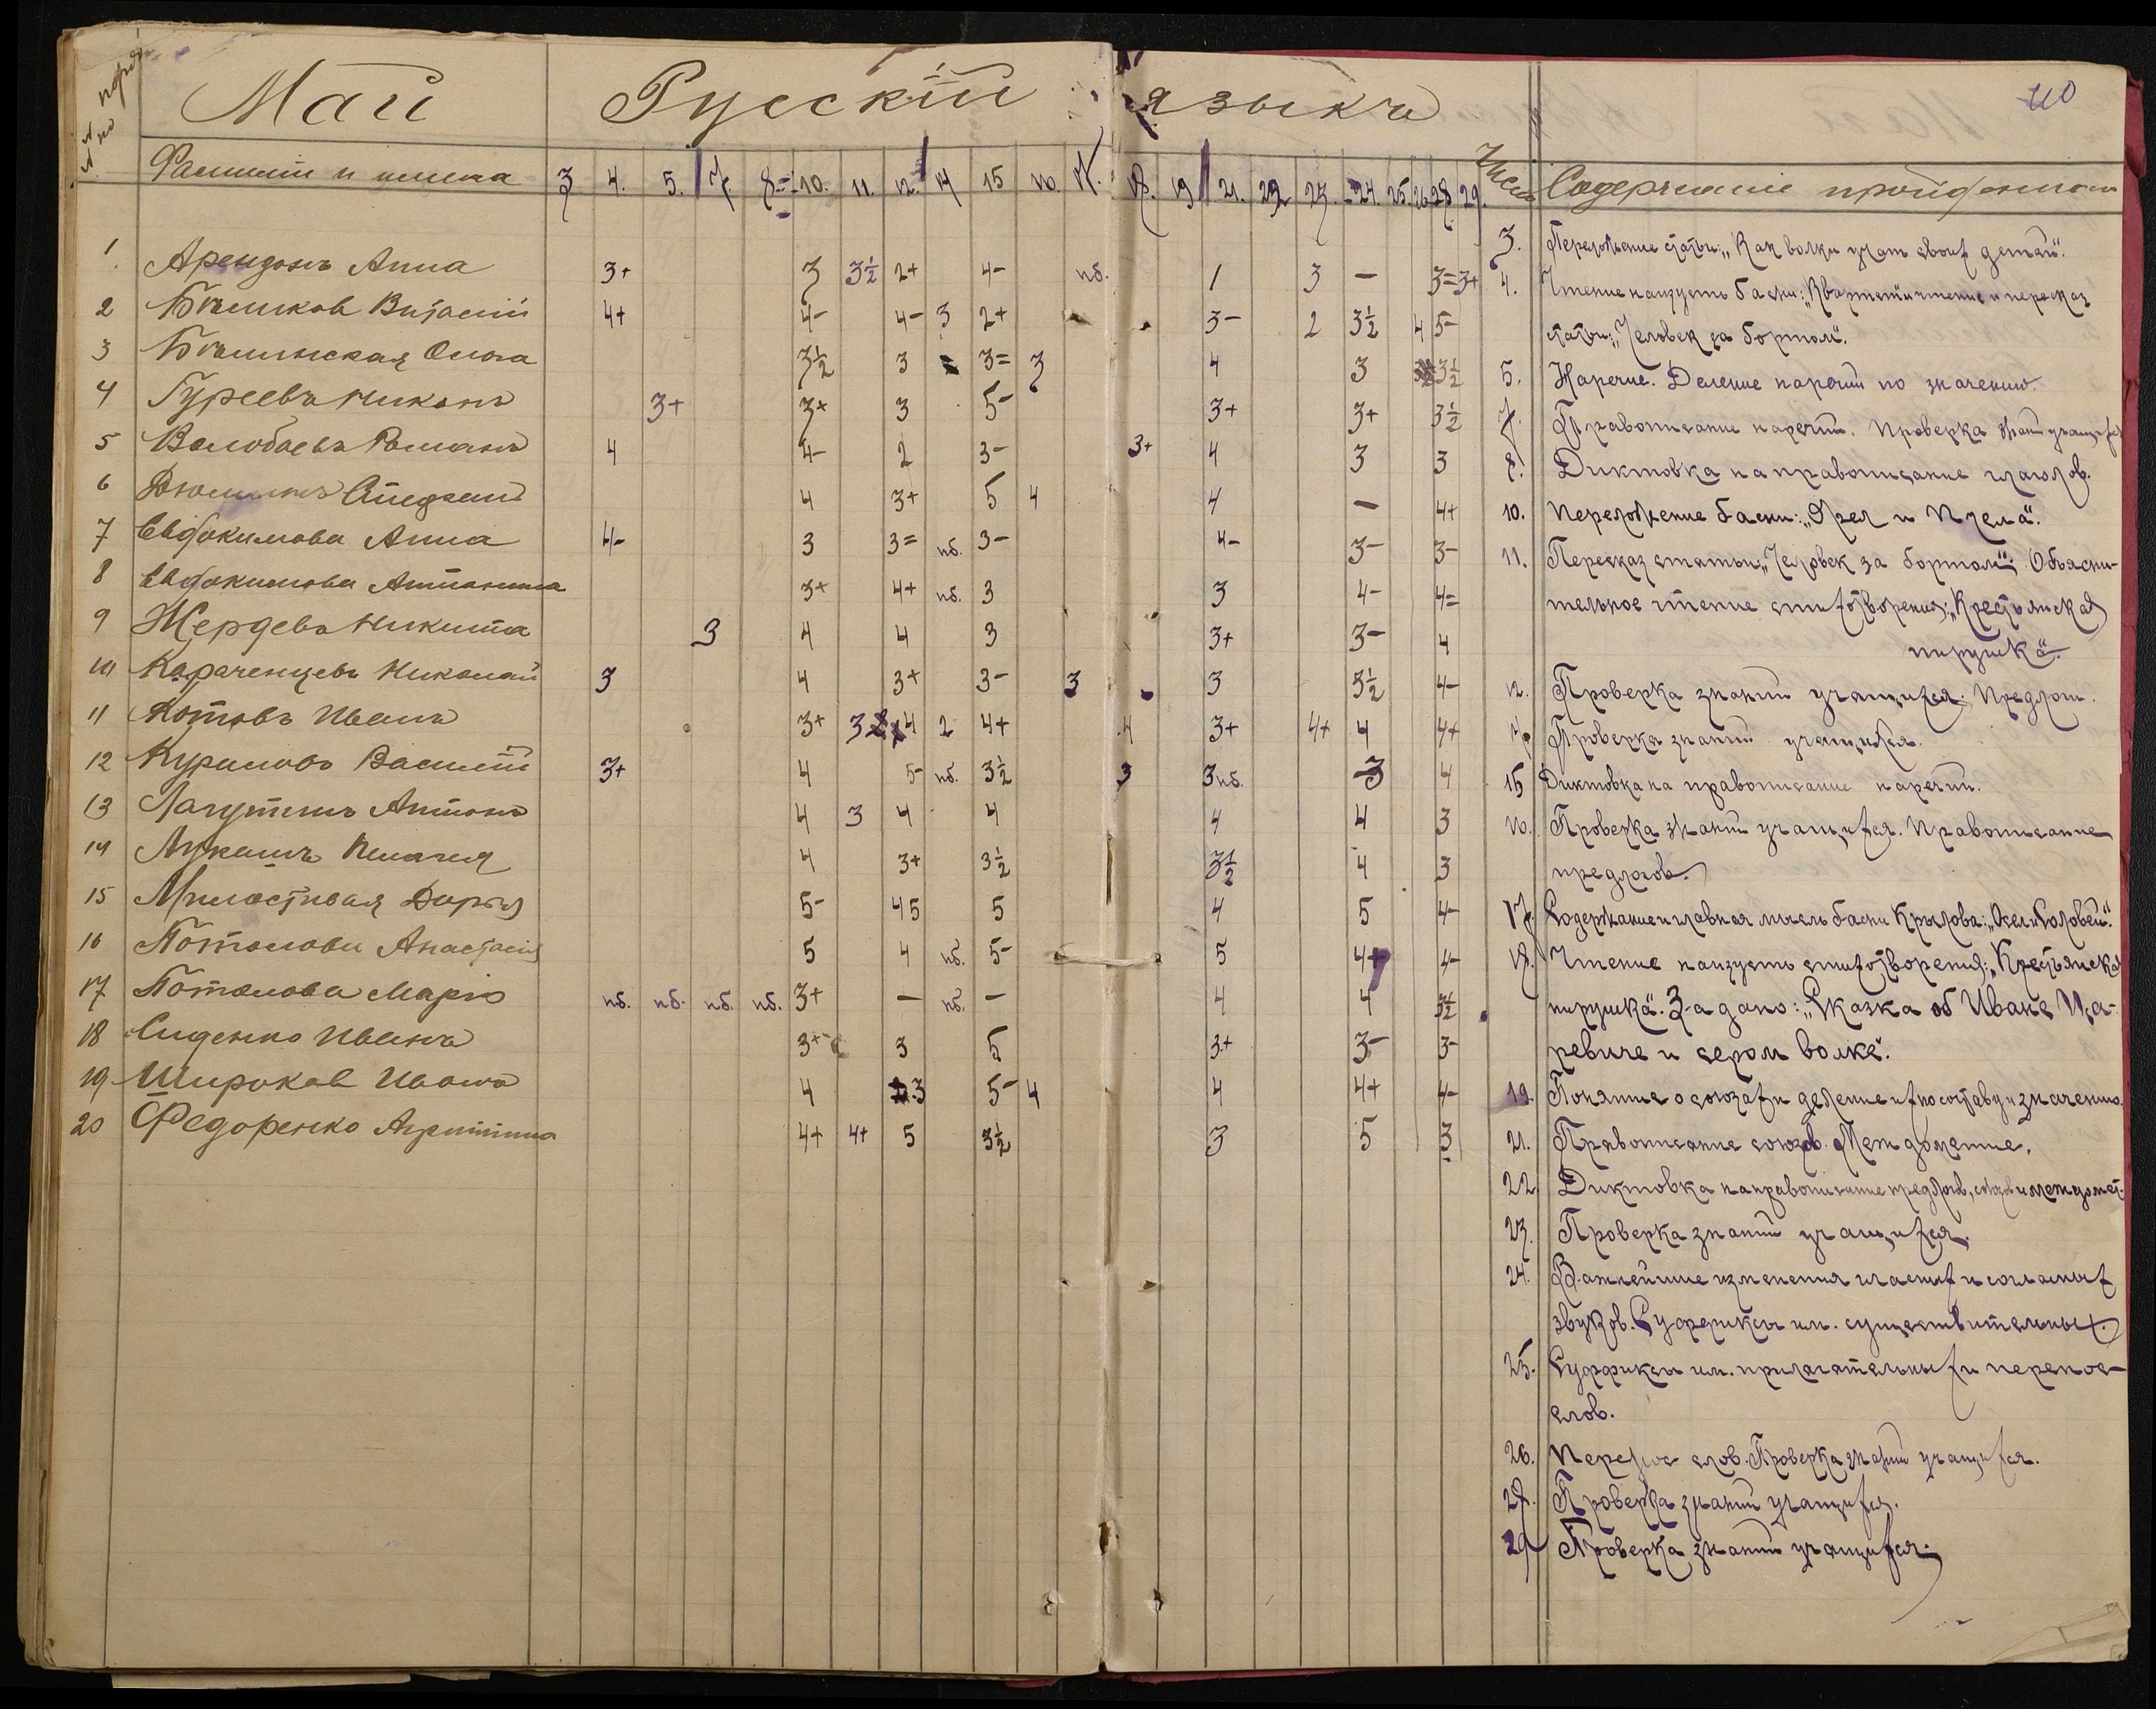 № по поряд
Май Русскій языкъ 110
Фамилія и имена 3 4. 5. 7. 8. 10. 11. 12. 14 15 16. 17. 18. 19 21. 22 23. 24. 25. 26 28 29. Число Содержаніе пройденнаго
1 Арендонъ Анна 3+ 3 3½ 2+ 4- нб. 1 3 — 3= 3+
2 Бѣликов Виталій 4+ 4- 4- 3 2+ 3- 2 3½ 4 5-
3 Бѣлинская Ольга 3½ 3 3= 3 4 3 3½
4 Гуреевъ Никонъ 3+ 3+ 3 5- 3+ 3+ 3½
5 Волобаевъ Романъ 4 4- 2 3- 3+ 4 3 3
6 4 3+ 5 4 4 — 4+
7 Евдокимова Анна 4- 3 3= нб. 3- 4- 3- 3-
8 Евдокимова Антонина 3+ 4+ нб. 3 3 4- 4=
9 Жердевъ Никита 3 4 4 3 3+ 3- 4
10 Караченцевъ Николай 3 4 3+ 3- 3 3 3½ 4-
11 Котовъ Иванъ 3+ 3 4 2 4+ 4 3+ 4+ 4 4+
12 Куриловъ Василій 3+ 4 5- нб. 3½ 3 3 нб. 3 4
13 Лагутинъ Антонъ 4 3 4 4 4 4 3
14 Лукашъ Пелагея 4 3+ 3½ 3½ 4 3
15 Милостивая Дарья 5- 45 5 4 5 4-
16 Потолова Анастасія 5 4 нб. 5- 5 4+ 4-
17 Потолова Марія нб. нб. нб. нб. 3+ — нб. — 4 4 3½
18 Сиденко Иванъ 3+ 3 5 3+ 3- 3-
19 Широков Иванъ 4 3 5- 4 4 4+ 4-
20 Федоренко 4+ 4+ 5 3½ 3 5 3
3. Переложение статьи: „Как волки учат своих детей“.
4. Чтение наизусть басни: „Квартет“ и чтение и пересказ
статьи: „Человек за бортом“.
5. Наречие. Деление наречий по значению.
7. Правописание наречий. Проверка знаний учащихся
8. Диктовка на правописание глаголов.
10. Переложение басни: „Орел и Пчела“.
11. Пересказ статьи „Человек за бортом“. Объясни-
тельное чтение стихотворения: „Крестьянская
пирушка“.
12. Проверка знаний учащихся. Предлог.
14. Проверка знаний учащихся.
15 Диктовка на правописание наречий.
16. Проверка знаний учащихся. Правописание
предлогов.
17. Содержание и главная мысль басни Крылова: „Осел и Соловей“.
18. Чтение наизусть стихотворения: „Крестьянская
пирушка“. З-а дано: „Сказка об Иване Ца-
ревиче и сером волке“.
19. Понятие о союзах и деление их по составу и значению.
21. Правописание союзов. Междометие.
22 Диктовка на правописание предлогов, союзов и междомет.
23. Проверка знаний учащихся.
24. Важнейшие изменения гласных и согласных
звуков. Суффиксы им. существительных.
25. Суффиксы им. прилагательных и перенос
слов.
26. Перенос слов. Проверка знаний учащихся.
28. Проверка знаний учащихся.
29 Проверка знаний учащихся.